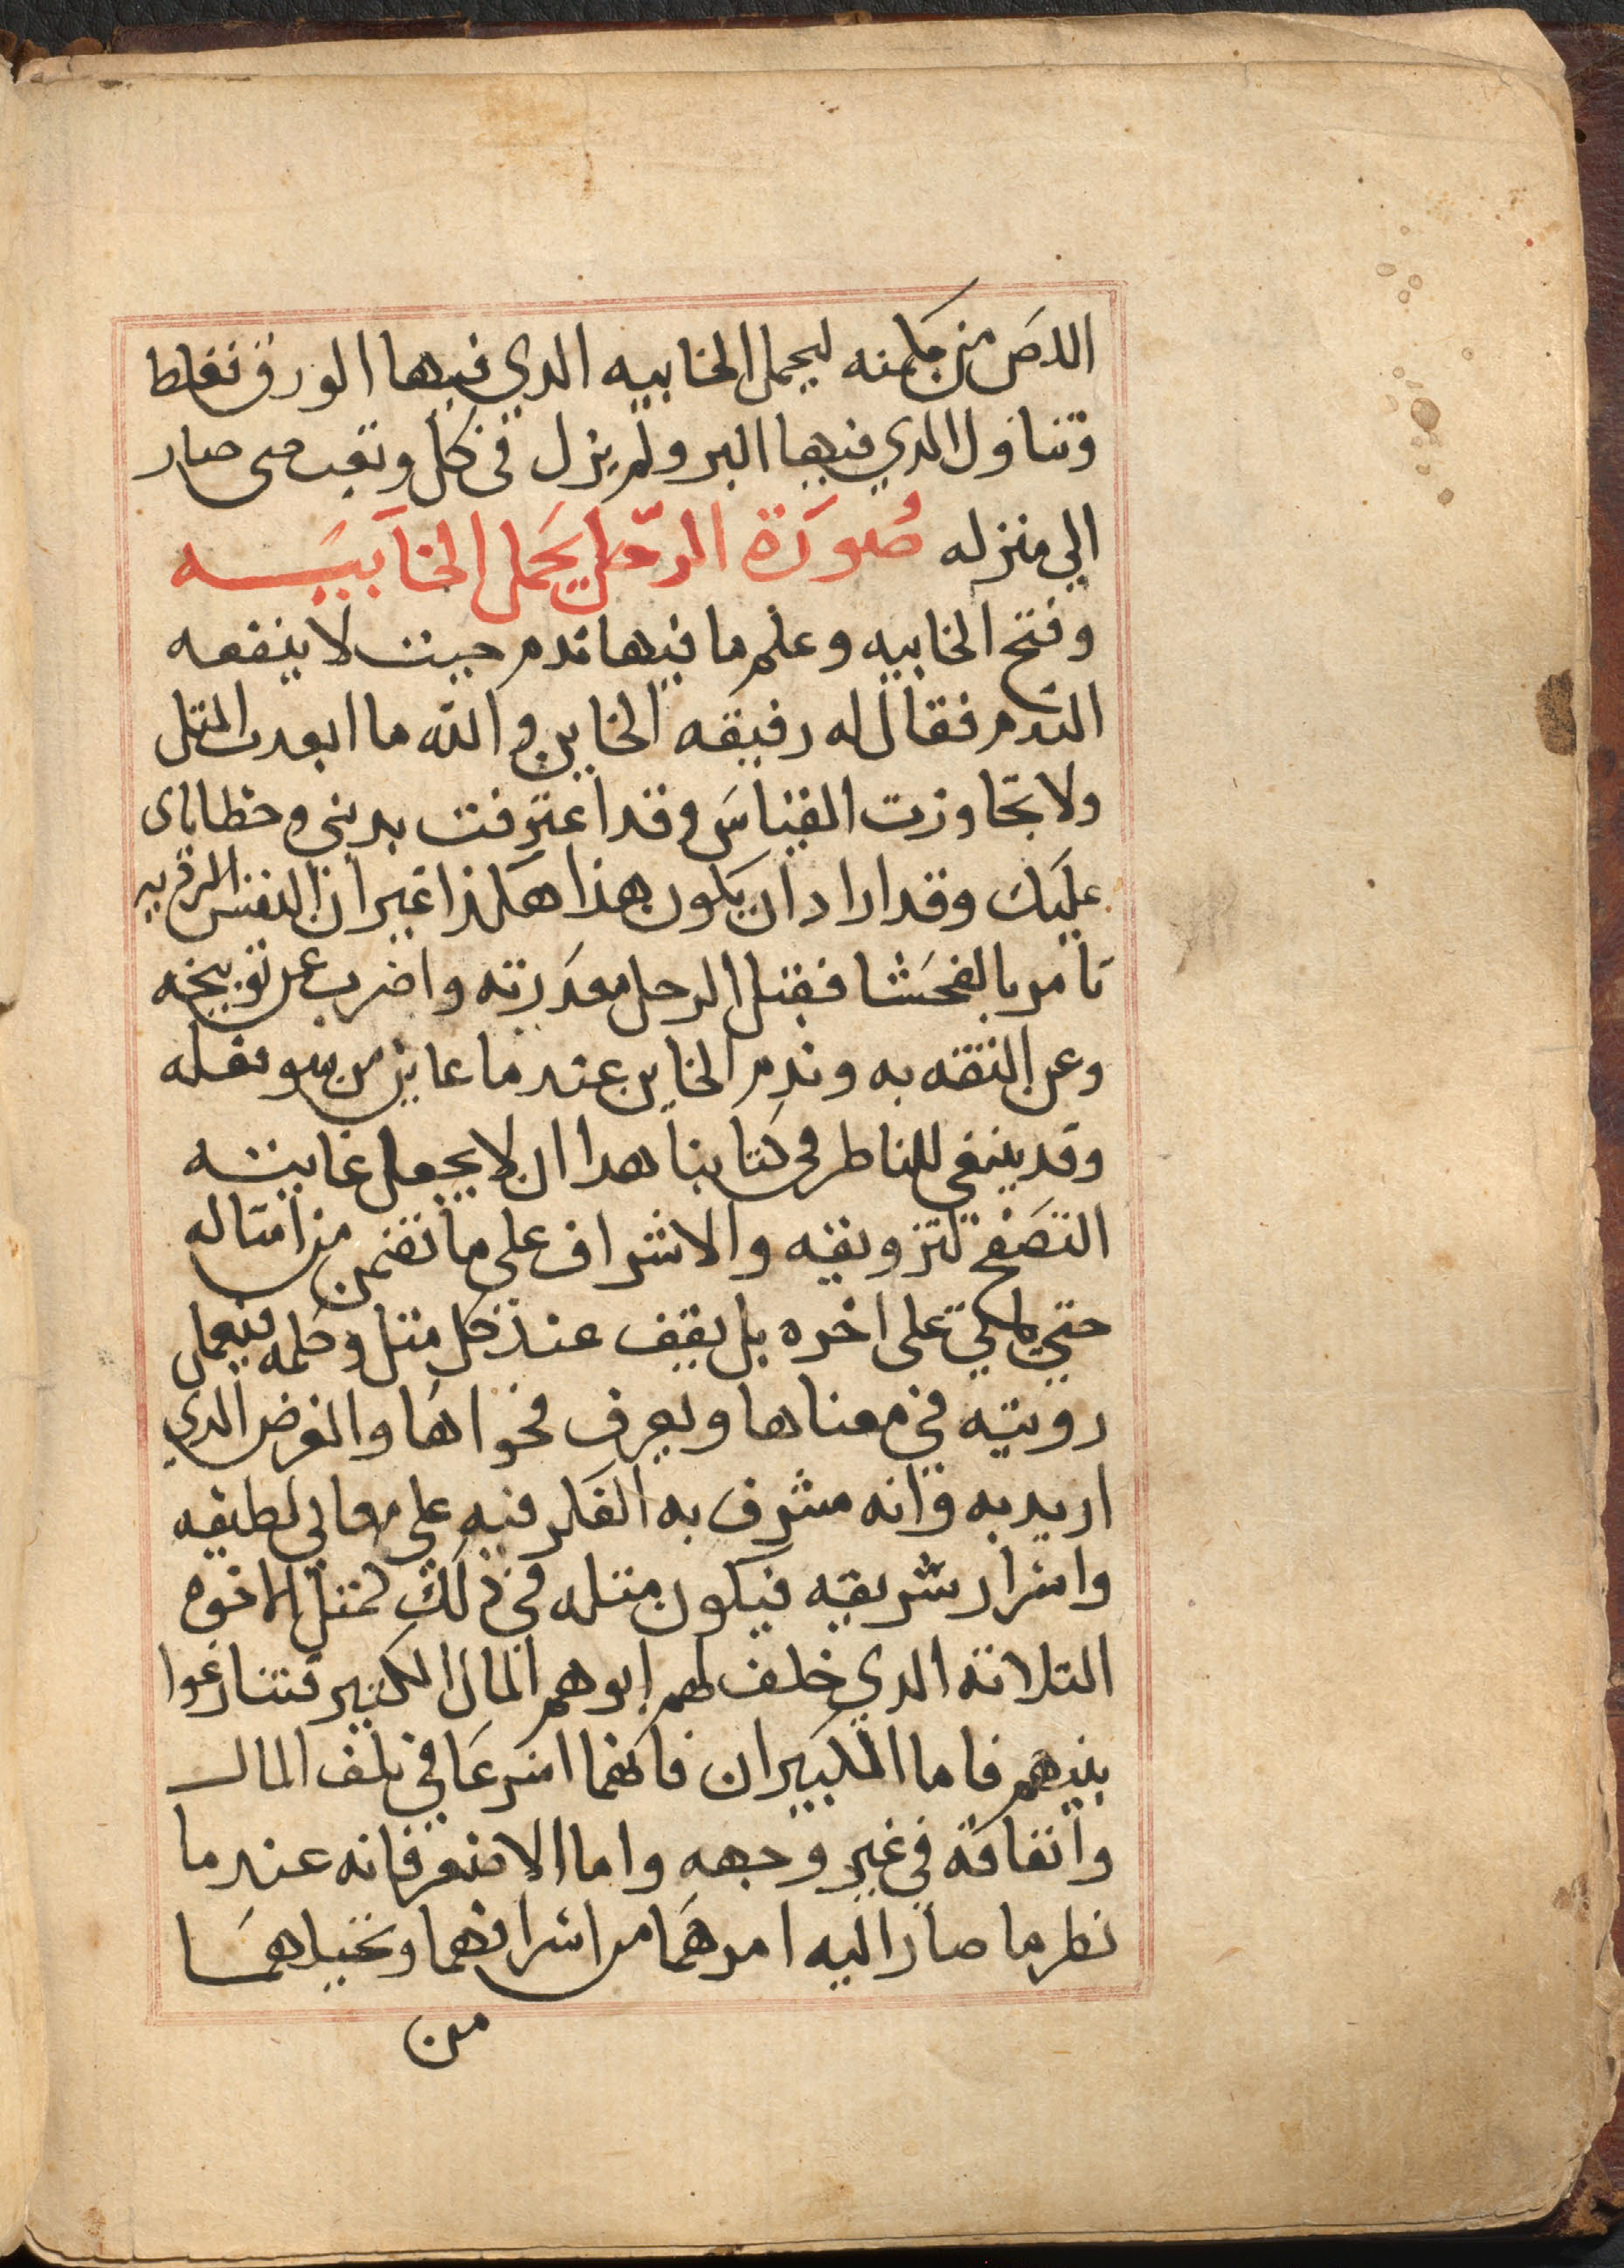 اللص من مكمنه ليحمل الخابيه الدي فيها الورق فغلط
وتناول الدي فيها البر ولم يزل فى كل وتعب حتى صار
الي منزله صُورَة الرّجل يحَمل الخاَبيَـــه
وفتح الخابيه وعلم ما فيها ندم حيت لا ينفعه
الندم فقال له رفيقه الخاين والله ما ابعدت المتل
ولا تجاوزت القياسَ وقد اعترفت بدنبي وخطاياى
عليك وقد اراد ان يكون هذا هكذا غير ان النفس الرديه
تامر بالفحَشا فقبل الرجل معدرته واضرب عن توبيخه
وعن الثقه به وندم الخاين عندما عاين من سو فعله
وقد ينبغي للناظر في كتابنا هدا ان لا يجعل غايته
التصَفح لتزويقه والاشراف على ما تضمن من امتاله
حتي ياتي على اخره بل يقف عند كل متل وكلمه فيعمل
رويته في معناها ويعرف فحواها والغرض الدي
اريد به وانه مشرف به الفكر فيه على معاني لطيفه
واسرار شريفه فيكون متله في ذلك كمتل الاخوه
التلاته الدي خلف لهم ابوهم المال الكتير فتنازعوا
بينهم فاما الكبيران فانهما اسرعَا في تلف المال
وانفاقه في غير وجهه واما الاصغر فانه عندما
نظر ما صار اليه امرهمَا من اسرافهما وتخليهمَا
من